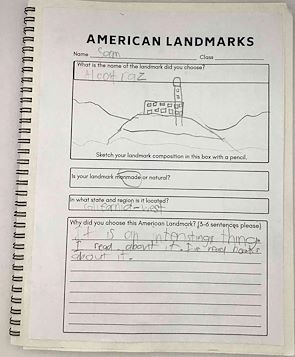 AMERICAN LANDMARKS
Name Sam Class
What is the name of the landmark did you choose?
Alcatraz
Sketch your landmark composition in this box with a pencil.
Is your landmark manmade or natural?
In what state and region is it located?
California-West
Why did you choose this American Landmark? (3-6 sentences please)
It is an intersting thing.
I read about it. I've read books
about it.